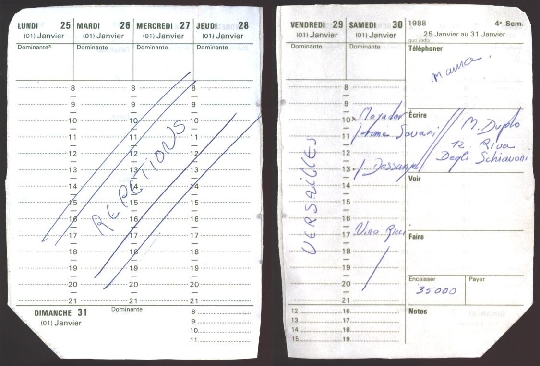 LUNDI 25 MARDI 26 MERCREDI 27 JEUDI 28
(01) Janvier (01) Janvier (01) Janvier (01) Janvier
Dominante Dominante Dominante Dominante
8 8
9 9
10 10
11 11
12 12
13 13
14 14
15 15
16 16
17 17
18 18
19 19
20 20
21 21
RÉPÉTITIONS
DIMANCHE 31
(01) Janvier
Dominante
8
9
10
11
VENDREDI 29 SAMEDI 30
(01) Janvier (01) Janvier
Dominante Dominante
8
9
10
11
12
13
14
15
16
17
18
19
20
21
VERSAILLES
Dessange
Nina Ricci
12 16
13 17
14 18
15 19
1988 4e Sem.
25 Janvier au 31 Janvier
Téléphoner
Maurice
Écrire
M. Duplo
12 Riva
Degli Schiavoni
Voir
Faire
Encaisser Payer
35000
Notes